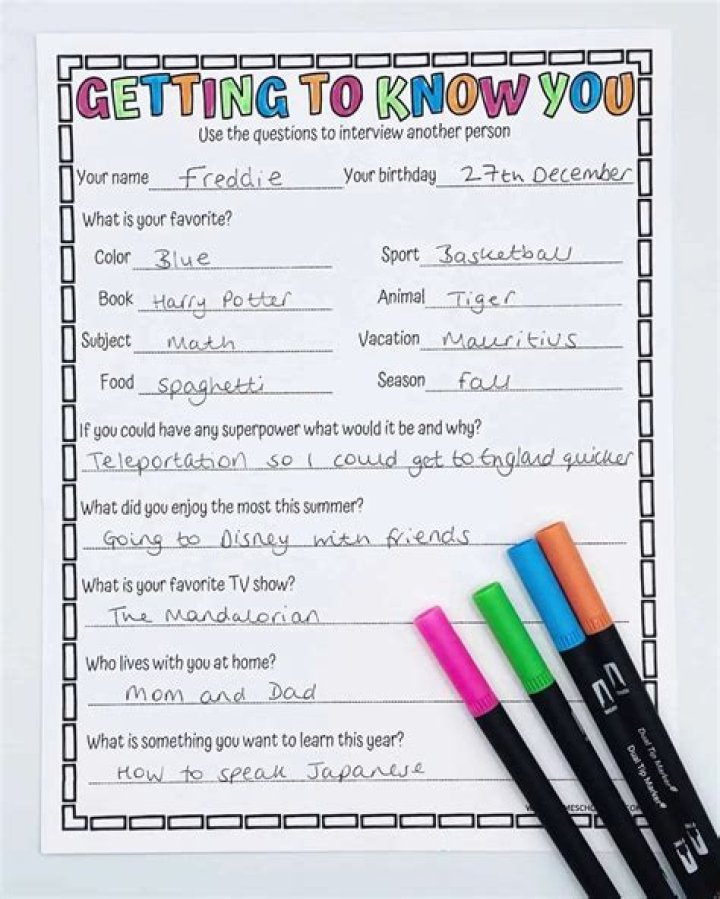 GETTING TO KNOW YOU
Use the questions to interview another person
Your name Freddie Your birthday 27th December
What is your favorite?
Color Blue Sport Basketball
Book Harry Potter Animal Tiger
Subject Math Vacation Mauritius
Food Spaghetti Season Fall
If you could have any superpower what would it be and why?
Teleportation so I could get to England quicker
What did you enjoy the most this summer?
Going to Disney with friends
What is your favorite TV show?
The Mandalorian
Who lives with you at home?
Mom and Dad
What is something you want to learn this year?
How to speak Japanese
Dual Tip Marker
Dual Tip Marker